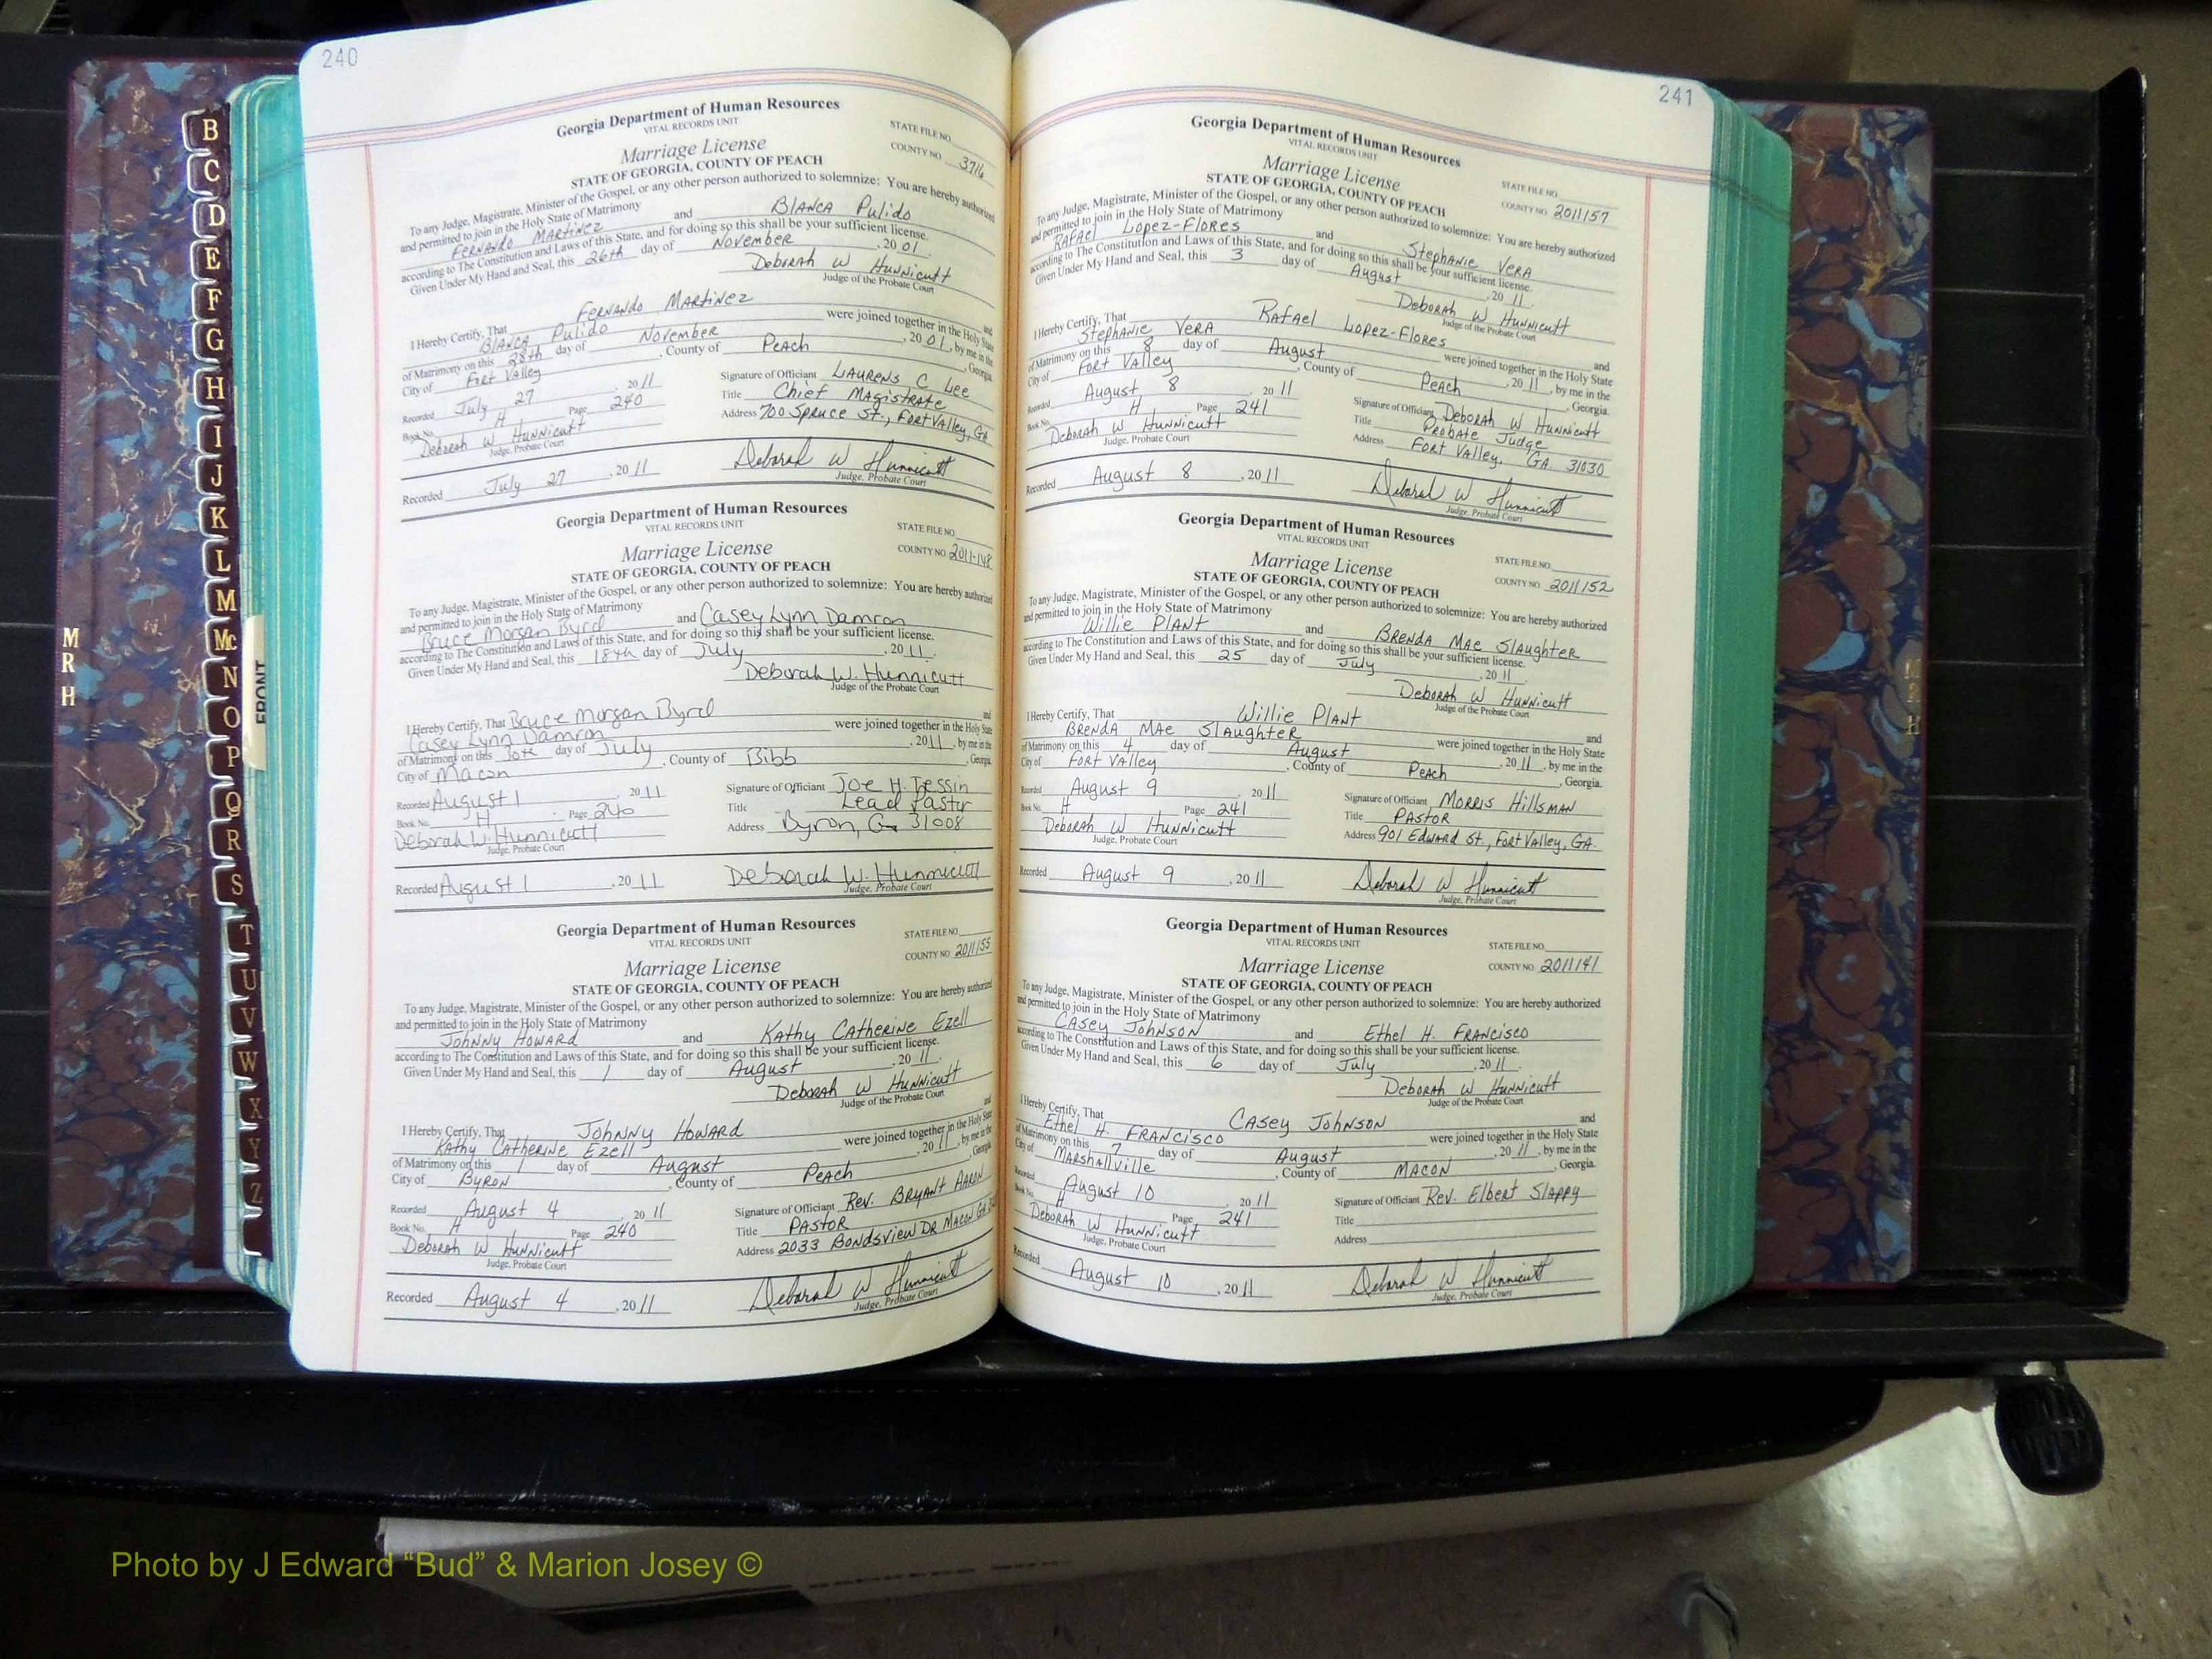 240
Georgia Department of Human Resources
VITAL RECORDS UNIT
STATE FILE NO.
Marriage License
COUNTY NO. 3716
STATE OF GEORGIA, COUNTY OF PEACH
To any Judge, Magistrate, Minister of the Gospel, or any other person authorized to solemnize: You are hereby authorized
and permitted to join in the Holy State of Matrimony
Fernando Martinez and Blanca Pulido
according to The Constitution and Laws of this State, and for doing so this shall be your sufficient license.
Given Under My Hand and Seal, this 26th day of November, 2001.
Deborah W Hunnicutt
Judge of the Probate Court
I Hereby Certify, That Fernando Martinez and
Blanca Pulido were joined together in the Holy State
of Matrimony on this 28th day of November, 2001, by me in the
City of Fort Valley, County of Peach, Georgia.
Recorded July 27, 2011
Signature of Officiant Laurens C Lee
Book No. H Page 240
Title Chief Magistrate
Deborah W Hunnicutt
Address 700 Spruce St., Fort Valley, GA
Judge, Probate Court
Recorded July 27, 2011
Deborah W Hunnicutt
Judge, Probate Court
Georgia Department of Human Resources
VITAL RECORDS UNIT
STATE FILE NO.
Marriage License
COUNTY NO. 2011-148
STATE OF GEORGIA, COUNTY OF PEACH
To any Judge, Magistrate, Minister of the Gospel, or any other person authorized to solemnize: You are hereby authorized
and permitted to join in the Holy State of Matrimony
Bruce Morgan Byrd and Casey Lynn Damron
according to The Constitution and Laws of this State, and for doing so this shall be your sufficient license.
Given Under My Hand and Seal, this 18th day of July, 2011.
Deborah W. Hunnicutt
Judge of the Probate Court
I Hereby Certify, That Bruce Morgan Byrd and
Casey Lynn Damron were joined together in the Holy State
of Matrimony on this 30th day of July, 2011, by me in the
City of Macon, County of Bibb, Georgia
Recorded August 1, 2011
Signature of Officiant Joe H. Tessin
Book No. H Page 240
Title Lead Pastor
Deborah W. Hunnicutt
Address Byron, Ga 31008
Judge, Probate Court
Recorded August 1, 2011
Deborah W. Hunnicutt
Judge, Probate Court
Georgia Department of Human Resources
VITAL RECORDS UNIT
STATE FILE NO.
Marriage License
COUNTY NO. 2011155
STATE OF GEORGIA, COUNTY OF PEACH
To any Judge, Magistrate, Minister of the Gospel, or any other person authorized to solemnize: You are hereby authorized
and permitted to join in the Holy State of Matrimony
Johnny Howard and Kathy Catherine Ezell
according to The Constitution and Laws of this State, and for doing so this shall be your sufficient license.
Given Under My Hand and Seal, this 1 day of August, 2011.
Deborah W Hunnicutt
Judge of the Probate Court
I Hereby Certify, That Johnny Howard and
Kathy Catherine Ezell were joined together in the Holy State
of Matrimony on this 1 day of August, 2011, by me in the
City of Byron, County of Peach, Georgia
Recorded August 4, 2011
Signature of Officiant Rev. Bryant Aaron
Book No. H Page 240
Title Pastor
Deborah W Hunnicutt
Address 2033 Bondsview Dr Macon GA
Judge, Probate Court
Recorded August 4, 2011
Deborah W Hunnicutt
Judge, Probate Court
241
Georgia Department of Human Resources
VITAL RECORDS UNIT
STATE FILE NO.
Marriage License
COUNTY NO. 2011157
STATE OF GEORGIA, COUNTY OF PEACH
To any Judge, Magistrate, Minister of the Gospel, or any other person authorized to solemnize: You are hereby authorized
and permitted to join in the Holy State of Matrimony
Rafael Lopez-Flores and Stephanie Vera
according to The Constitution and Laws of this State, and for doing so this shall be your sufficient license.
Given Under My Hand and Seal, this 3 day of August, 2011.
Deborah W Hunnicutt
Judge of the Probate Court
I Hereby Certify, That Rafael Lopez-Flores and
Stephanie Vera were joined together in the Holy State
of Matrimony on this 8 day of August, 2011, by me in the
City of Fort Valley, County of Peach, Georgia.
Recorded August 8, 2011
Signature of Officiant Deborah W Hunnicutt
Book No. H Page 241
Title Probate Judge
Deborah W Hunnicutt
Address Fort Valley, GA 31030
Judge, Probate Court
Recorded August 8, 2011
Deborah W Hunnicutt
Judge, Probate Court
Georgia Department of Human Resources
VITAL RECORDS UNIT
STATE FILE NO.
Marriage License
COUNTY NO. 2011152
STATE OF GEORGIA, COUNTY OF PEACH
To any Judge, Magistrate, Minister of the Gospel, or any other person authorized to solemnize: You are hereby authorized
and permitted to join in the Holy State of Matrimony
Willie Plant and Brenda Mae Slaughter
according to The Constitution and Laws of this State, and for doing so this shall be your sufficient license.
Given Under My Hand and Seal, this 25 day of July, 2011.
Deborah W Hunnicutt
Judge of the Probate Court
I Hereby Certify, That Willie Plant and
Brenda Mae Slaughter were joined together in the Holy State
of Matrimony on this 4 day of August, 2011, by me in the
City of Fort Valley, County of Peach, Georgia.
Recorded August 9, 2011
Signature of Officiant Morris Hillsman
Book No. H Page 241
Title Pastor
Deborah W Hunnicutt
Address 901 Edward St., Fort Valley, GA.
Judge, Probate Court
Recorded August 9, 2011
Deborah W Hunnicutt
Judge, Probate Court
Georgia Department of Human Resources
VITAL RECORDS UNIT
STATE FILE NO.
Marriage License
COUNTY NO. 2011141
STATE OF GEORGIA, COUNTY OF PEACH
To any Judge, Magistrate, Minister of the Gospel, or any other person authorized to solemnize: You are hereby authorized
and permitted to join in the Holy State of Matrimony
Casey Johnson and Ethel H. Francisco
according to The Constitution and Laws of this State, and for doing so this shall be your sufficient license.
Given Under My Hand and Seal, this 6 day of July, 2011.
Deborah W Hunnicutt
Judge of the Probate Court
I Hereby Certify, That Casey Johnson and
Ethel H. Francisco were joined together in the Holy State
of Matrimony on this 7 day of August, 2011, by me in the
City of Marshallville, County of Macon, Georgia.
Recorded August 10, 2011
Signature of Officiant Rev. Elbert Slappy
Book No. H Page 241
Title
Deborah W Hunnicutt
Address
Judge, Probate Court
Recorded August 10, 2011
Deborah W Hunnicutt
Judge, Probate Court
B
C
D
E
F
G
H
I
J
K
L
M
Mc
N
O
P
Q
R
S
T
U
V
W
X
Y
Z
M
R
H
FRONT
Photo by J Edward “Bud” & Marion Josey ©